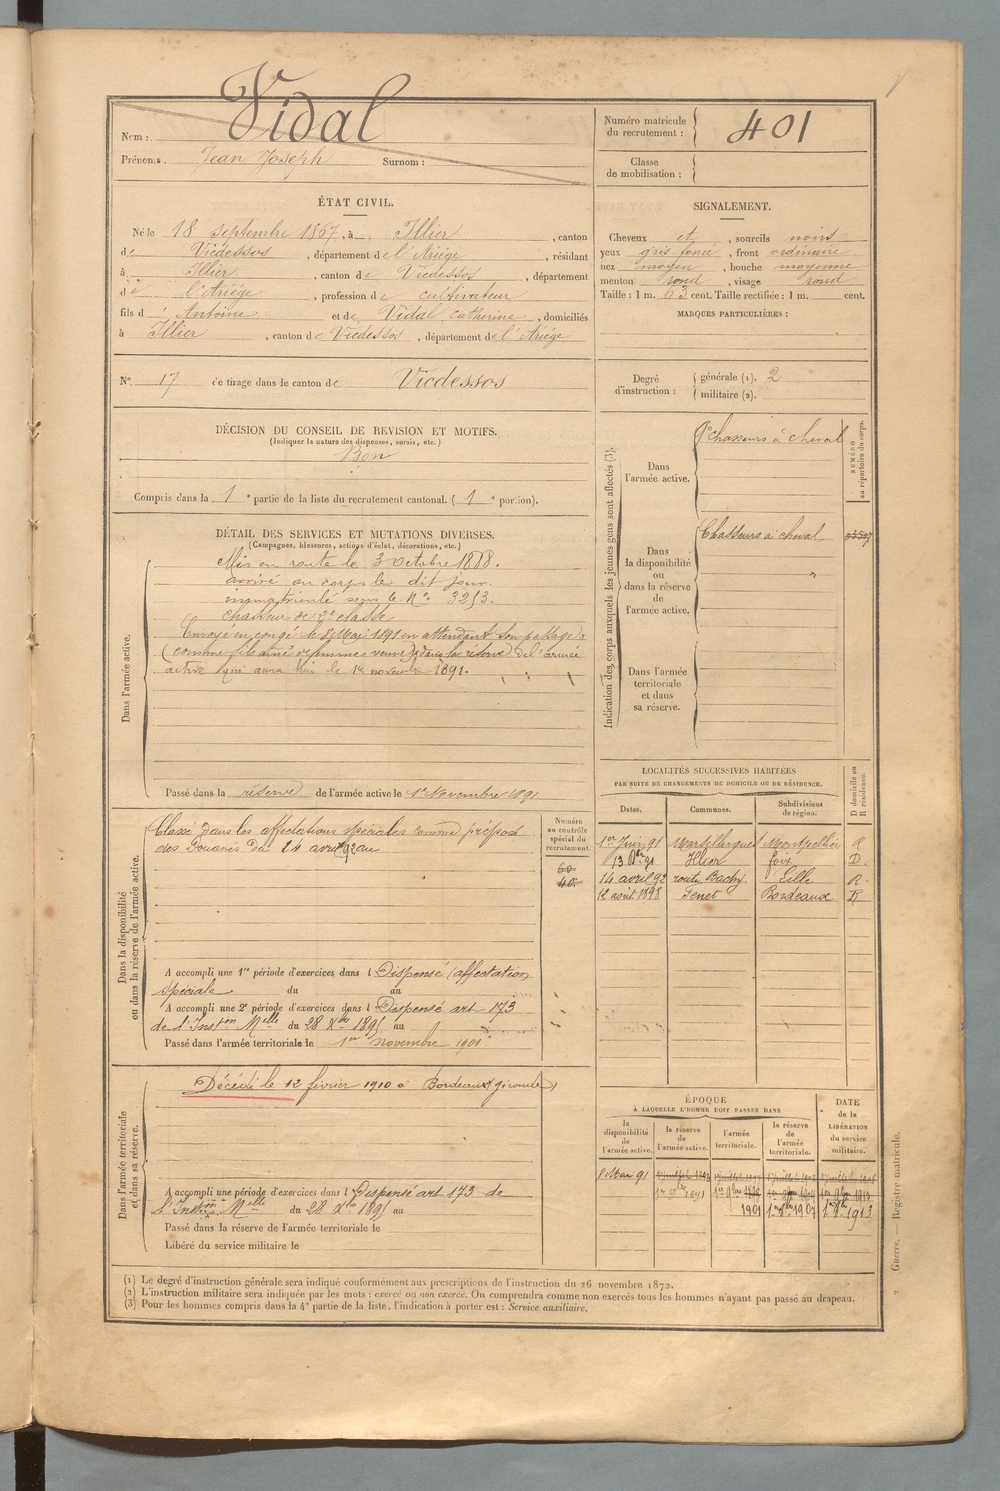 Vidal
Nom :
Prénoms. Jean Joseph Surnom :
Numéro matricule du recrutement : 401
Classe de mobilisation :
ÉTAT CIVIL.
Né le 18 septembre 1867, à Illier, canton
de Vicdessos, département de l'Ariège, résidant
à Illier, canton de Vicdessos, département
de l'Ariège, profession de cultivateur
fils d' Antoine et de Vidal Catherine, domiciliés
à Illier, canton de Vicdessos, département de l'Ariège
SIGNALEMENT.
Cheveux et, sourcils noirs
yeux gris foncé, front ordinaire
nez moyen, bouche moyenne
menton rond, visage rond
Taille : 1 m. 63 cent. Taille rectifiée : 1 m. cent.
MARQUES PARTICULIÈRES :
N° 17 de tirage dans le canton de Vicdessos
Degré d'instruction : générale (1). 2
militaire (2).
DÉCISION DU CONSEIL DE REVISION ET MOTIFS.
(Indiquer la nature des dispenses, sursis, etc.)
Bon
Compris dans la 1e partie de la liste du recrutement cantonal. (1e portion).
DÉTAIL DES SERVICES ET MUTATIONS DIVERSES.
(Campagnes, blessures, actions d'éclat, décorations, etc.)
Dans l'armée active.
Mis en route le 3 octobre 1888.
arrivé au corps le dit jour.
immatriculé sous le N° 3253.
chasseur de 2e classe
Envoyé en congé le 8 Mai 1891 en attendant son passage
(comme fils aîné de femme veuve) dans la réserve de l'armée
active qui aura lieu le 1er novembre 1891.
Passé dans la réserve de l'armée active le 1er Novembre 1891
Indication des corps auxquels les jeunes gens sont affectés (3).
NUMÉRO au répertoire du corps.
Dans l'armée active.
chasseurs à cheval
Dans la disponibilité ou dans la réserve de l'armée active.
Chasseurs à cheval
Dans l'armée territoriale et dans sa réserve.
LOCALITÉS SUCCESSIVES HABITÉES
PAR SUITE DE CHANGEMENTS DE DOMICILE OU DE RÉSIDENCE.
D domicile ou R résidence.
Dates. Communes. Subdivisions de région.
1er Juin 91 Marsillargues Montpellier R
13 Bre 91 Illier foix D.
14 avril 92 route Bachy Lille R.
12 août 1898 Bordeaux R
Dans la disponibilité ou dans la réserve de l'armée active.
Numéro au contrôle spécial du recrutement.
60
40
Classé dans les affectations spéciales comme préposé
des Douanes du 14 avril 92 au
A accompli une 1re période d'exercices dans l Dispensé (affectation
spéciale du au
A accompli une 2e période d'exercices dans l Dispensé art 173
de l'Inston Melle du 28 Xbre 1895 au
Passé dans l'armée territoriale le 1er novembre 1901
Dans l'armée territoriale et dans sa réserve.
Décédé le 12 février 1910 à Bordeaux (gironde)
A accompli une période d'exercices dans l Dispensé art 173 de
l'Inston Melle du 28 Xbre 1895 au
Passé dans la réserve de l'armée territoriale le
Libéré du service militaire le
ÉPOQUE
À LAQUELLE L'HOMME DOIT PASSER DANS
DATE de la LIBÉRATION du service militaire.
la disponibilité de l'armée active. la réserve de l'armée active. l'armée territoriale. la réserve de l'armée territoriale.
8 Mai 91
1er 9bre 1891 1er 9bre 1901 1er 9bre 1907 1er 9bre 1913
(1) Le degré d'instruction générale sera indiqué conformément aux prescriptions de l'instruction du 26 novembre 1872.
(2) L'instruction militaire sera indiquée par les mots : exercé ou non exercé. On comprendra comme non exercés tous les hommes n'ayant pas passé au drapeau.
(3) Pour les hommes compris dans la 4e partie de la liste, l'indication à porter est : Service auxiliaire.
Guerre. — Registre matricule.